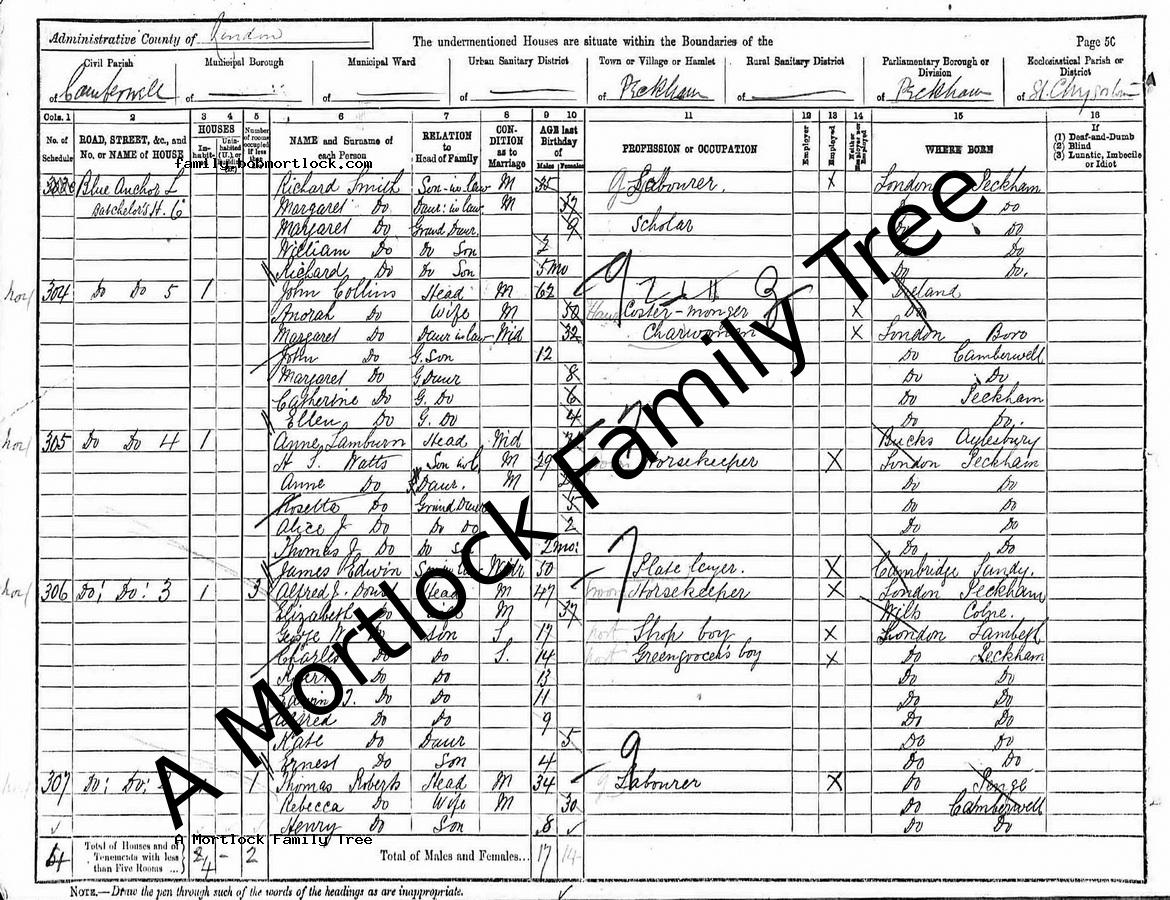 Administrative County of London
The undermentioned Houses are situate within the Boundaries of the
Page 50
Civil Parish
of Camberwell
Municipal Borough
of
Municipal Ward
of
Urban Sanitary District
of
Town or Village or Hamlet
of Peckham
Rural Sanitary District
of
Parliamentary Borough or Division
of Peckham
Ecclesiastical Parish or District
of St. Chrysostom
Cols. 1 2 3 4 5 6 7 8 9 10 11 12 13 14 15 16
No. of Schedule
ROAD, STREET, &c., and No. or NAME of HOUSE
HOUSES
Number of rooms occupied if less than five
NAME and Surname of each Person
RELATION to Head of Family
CONDITION as to Marriage
AGE last Birthday of
Males Females
PROFESSION or OCCUPATION
Employer
Employed
Neither Employer nor Employed
WHERE BORN
If
(1) Deaf-and-Dumb
(2) Blind
(3) Lunatic, Imbecile or Idiot
family.bobmortlock.com
Blue Anchor L Richard Smith Son-in-law M 35 Labourer. X London Peckham
Batchelors H. 6 Margaret Do Daur: in law M Do Do
Margaret Do Grand Daur. 9 Scholar Do Do
William Do Do Son 2 Do Do
Richard Do Do Son 5 mo Do Do.
304 Do Do 5 1 John Collins Head M 62 Ireland
Norah Do Wife M 50 Coster-monger X Do
Margaret Do Daur in law Wid 32 Charwoman X London Boro
John Do G. Son 12 Do Camberwell
Margaret Do G Daur 8 Do Do
Catherine Do G. Do 6 Do Peckham
Ellen Do G. Do 4 Do Do.
305 Do Do 4 1 Anne Lamburn Head Wid Bucks Aylesbury
H S. Watts Son in L M 29 Horsekeeper X London Peckham
Anne Do Daur. M Do Do
Rosetta Do Grand Daur 5 Do Do
Alice J Do Do Do 2 Do Do
Thomas J. Do Do S 2 mo: Do Do
James Edwin Son in law Widr 50 Plate layer. X Cambridge Sandy.
306 Do: Do: 3 1 3 Alfred J. Head M 47 Horsekeeper X London Peckham
Elizabeth Do Wife M 37 Wilts Colne.
George W. Do Son S 17 Shop boy X London Lambeth
Charles Do Do S. 14 Greengrocer's boy X Do Peckham
Do Do 13 Do Do
Edwin J. Do Do 11 Do Do
Alfred Do Do 9 Do Do
Kate Do Daur 5 Do Do
Ernest Do Son 4 Do Do
307 Do: Do: 1 Thomas Roberts Head M 34 Labourer X Do Penge
Rebecca Do Wife M 30 Do Camberwell
Henry Do Son 8 Do Do
A Mortlock Family Tree
A Mortlock Family Tree
4 Total of Houses and of Tenements with less than Five Rooms ... 4 - 2 Total of Males and Females... 17 14
NOTE.—Draw the pen through such of the words of the headings as are inappropriate.